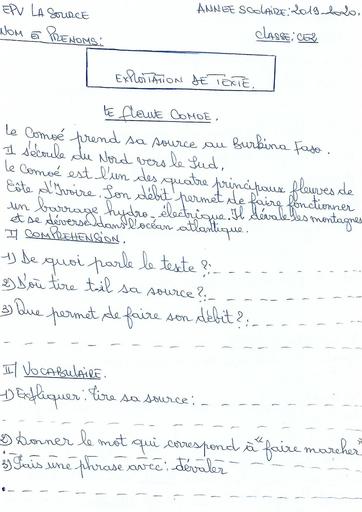 EPV LA SOURCE
ANNEE SCOLAIRE: 2019-2020.
NOM ET PRENOMS:
CLASSE: CE2
EXPLOITATION DE TEXTE.
LE fleuve COMOE.
Le Comoé prend sa source au Burkina Faso.
Il s'écoule du Nord vers le Sud,
Le Comoé est l'un des quatre principaux fleuves de
Côte d'Ivoire. Son débit permet de faire fonctionner
un barrage hydro-électrique. Il dévale les montagnes
et se déverse dans l'océan atlantique.
I) COMPREHENSION.
1) De quoi parle le texte ?:
2) D'où tire t-il sa source ?:
3) Que permet de faire son débit ?:
II) VOCABULAIRE.
1) Expliquer: tire sa source:
2) Donner le mot qui correspond à "faire marcher"
3) Fais une phrase avec: dévaler